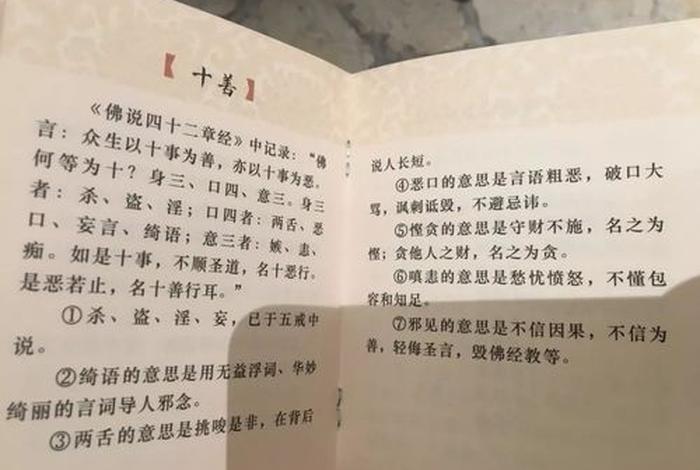 【十善】
《佛说四十二章经》中记录：“佛
言：众生以十事为善，亦以十事为恶。
何等为十？身三、口四、意三。身三
者：杀、盗、淫；口四者：两舌、恶
口、妄言、绮语；意三者：嫉、恚、
痴。如是十事，不顺圣道，名十恶行。
是恶若止，名十善行耳。”
①杀、盗、淫、妄，已于五戒中
说。
②绮语的意思是用无益浮词、华妙
绮丽的言词导人邪念。
③两舌的意思是挑唆是非，在背后
说人长短。
④恶口的意思是言语粗恶，破口大
骂，讽刺诋毁，不避忌讳。
⑤悭贪的意思是守财不施，名之为
悭；贪他人之财，名之为贪。
⑥嗔恚的意思是愁忧愤怒，不懂包
容和知足。
⑦邪见的意思是不信因果，不信为
善，轻侮圣言，毁佛经教等。